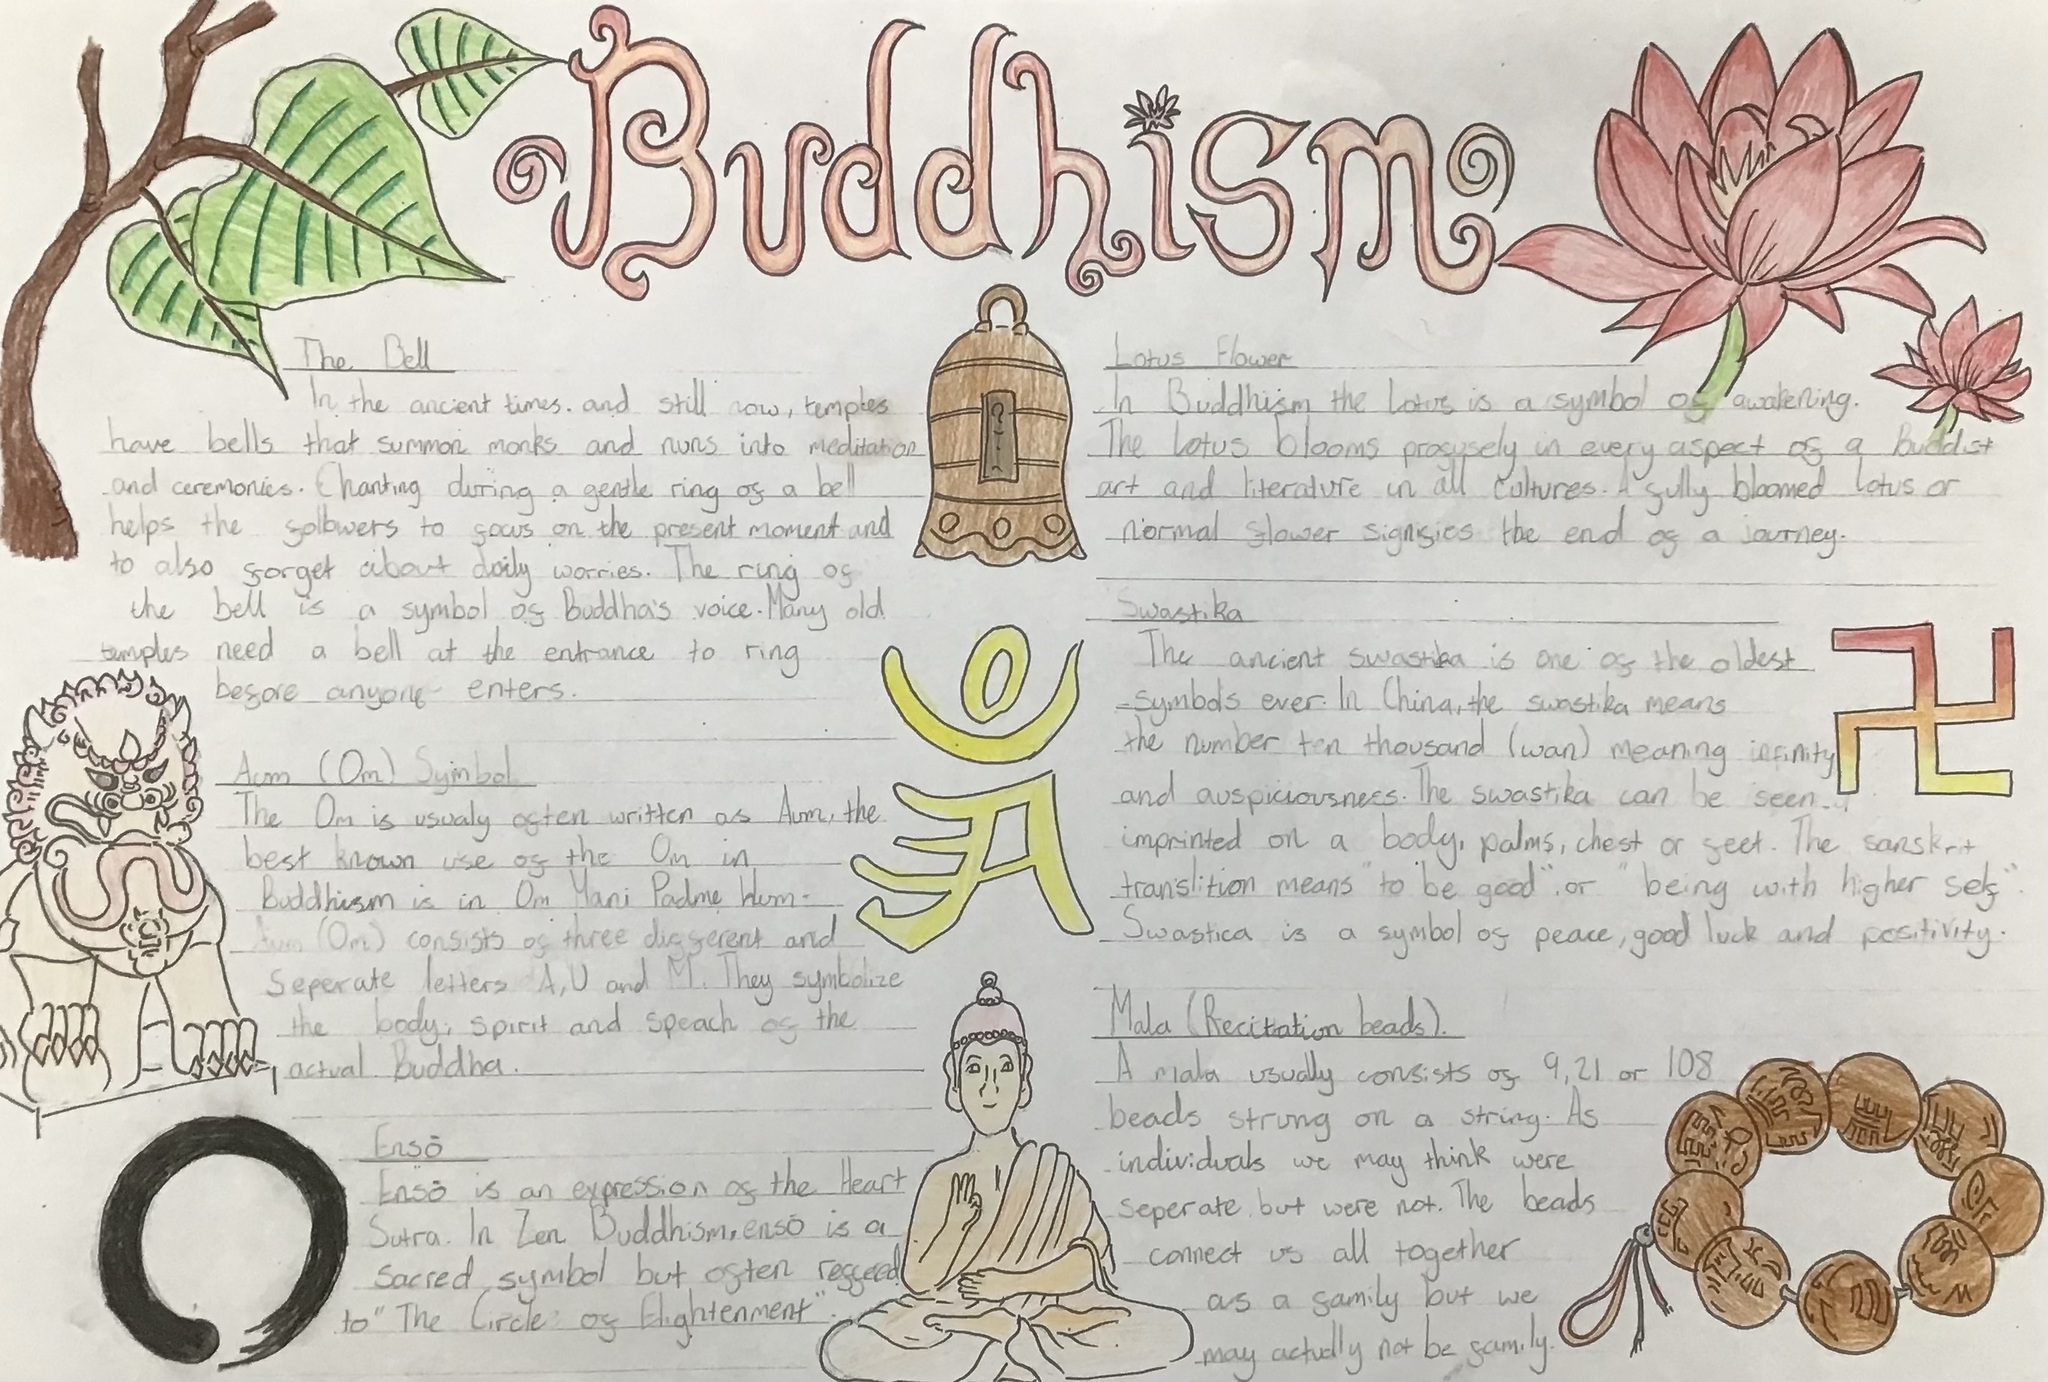 Buddhism
The Bell
In the ancient times. and still now, temples
have bells that summon monks and nuns into meditation
and ceremonies. Chanting during a gentle ring of a bell
helps the follwers to focus on the present moment and
to also forget about daily worries. The ring of
the bell is a symbol of Buddha's voice. Many old
temples need a bell at the entrance to ring
before anyone enters.
Aum (Om) Symbol
The Om is usualy often written as Aum, the
best known use of the Om in
Buddhism is in Om Mani Padme Hum.
Aum (Om) consists of three different and
seperate letters A, U and M. They symbolize
the body, spirit and speach of the
actual Buddha.
Ensō
Ensō is an expression of the Heart
Sutra. In Zen Buddhism, ensō is a
sacred symbol but often reffered
to "The Circle of Elightenment".
Lotus Flower
In Buddhism the Lotus is a symbol of awakening.
The lotus blooms profusely in every aspect of a Buddist
art and literature in all cultures. A fully bloomed lotus or
normal flower signifies the end of a journey.
Swastika
The ancient swastika is one of the oldest
symbols ever. In China, the swastika means
the number ten thousand (wan) meaning infinity
and auspiciousness. The swastika can be seen
imprinted on a body, palms, chest or feet. The sanskrit
translition means "to be good". or "being with higher self".
Swastica is a symbol of peace, good luck and positivity.
Mala (Recitration beads).
A mala usually consists of 9, 21 or 108
beads strung on a string. As
individuals we may think were
seperate but were not. The beads
connect us all together
as a family but we
may actually not be family.